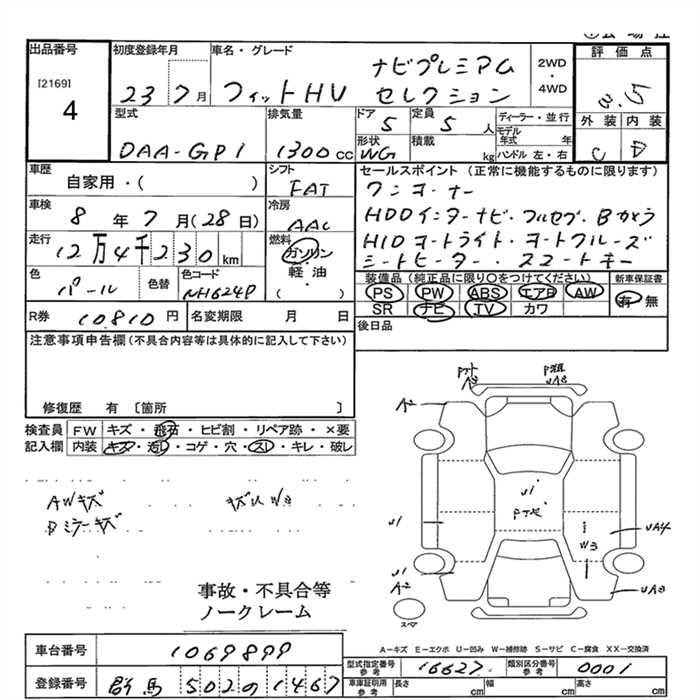 出品番号 初度登録年月 車名・グレード 2WD・4WD 評価点
[2169] 4
23 7月 フィットHV ナビプレミアム セレクション 3.5
型式 排気量 ドア 定員 ディーラー・並行 外装 内装
DAA-GP1 1300cc 5 5人 モデル年式 年 C D
形状 WG 積載 kg ハンドル 左・右
車歴 シフト セールスポイント (正常に機能するものに限ります)
自家用・( ) FAT ワンオーナー
車検 冷房 HDDインターナビ・フルセグ・Bカメラ
8年7月(28日) AAC HIDオートライト・オートクルーズ
走行 燃料 シートヒーター・スマートキー
12万4千230km ガソリン・軽油・( )
色 色替 色コード 装備品 (純正品に限り○をつけてください) 新車保証書
パール NH624P PS PW ABS エアB AW 有 無
SR ナビ TV カワ
R券 10.810円 名変期限 月 日 後日品
注意事項申告欄(不具合内容等は具体的に記入して下さい)
修復歴 有 〔箇所 〕
検査員記入欄 FW キズ・飛石・ヒビ割・リペア跡・×要
内装 キズ・汚レ・コゲ・穴・スレ・キレ・破レ
AWキズ
Bミラーキズ
A2
U1
UA4
W3
UA3
U1
A2
スペア
事故・不具合等
ノークレーム
A−キズ E−エクボ U−凹み W−補修跡 S−サビ C−腐食 XX−交換済
車台番号 1069899
型式指定番号 参考 16627 類別区分番号 参考 0001
登録番号 群馬 502の1467
車庫証明用 参考 長さ cm 幅 cm 高さ cm